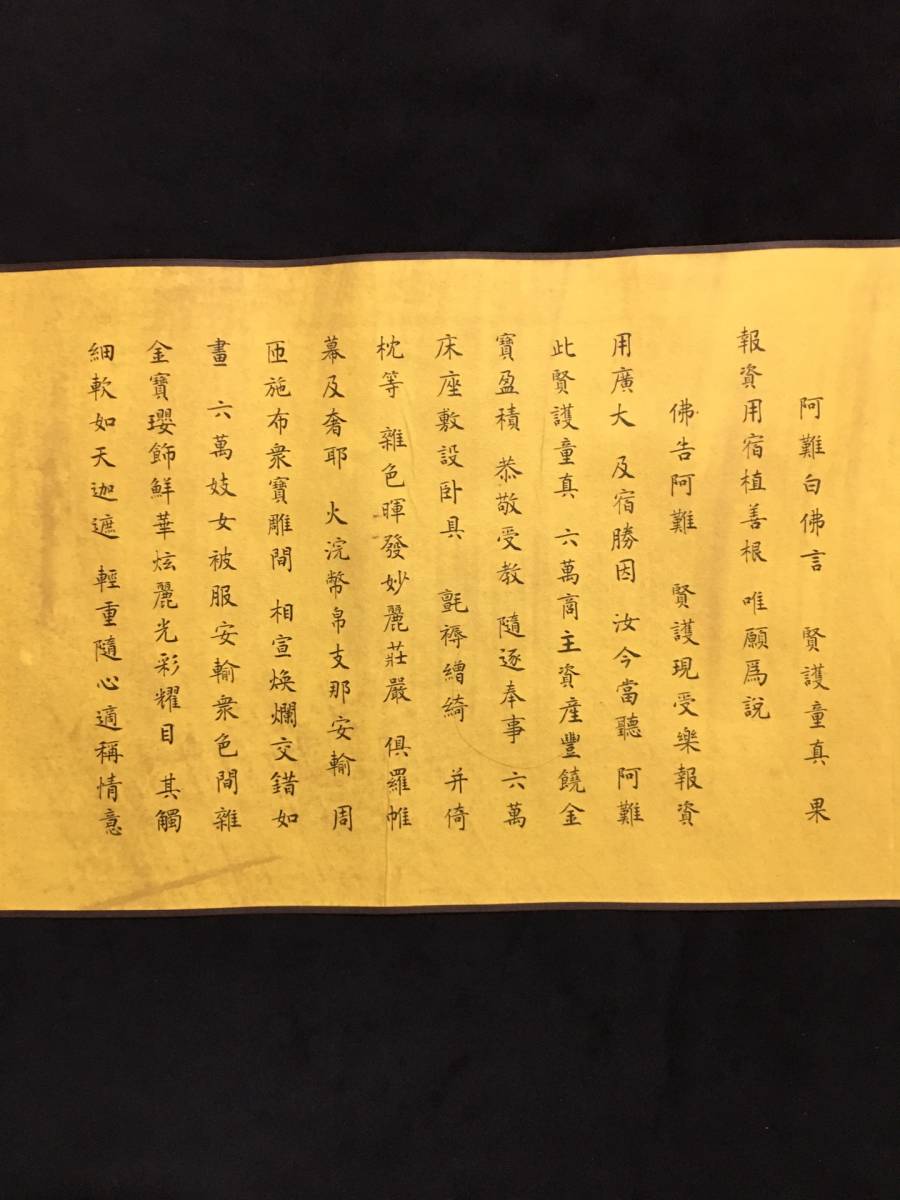 阿難白佛言 賢護童真 果
報資用宿植善根 唯願爲説
佛告阿難 賢護現受樂報資
用廣大 及宿勝因 汝今當聽 阿難
此賢護童真 六萬商主資産豐饒金
寶盈積 恭敬受教 隨逐奉事 六萬
床座敷設卧具 氈褥繒綺 并倚
枕等 雜色暉發妙麗莊嚴 俱羅帷
幕及奢耶 火浣幣帛支那安輸 周
匝施布衆寶雕間 相宣焕爛交錯如
畫 六萬妓女被服安輸衆色間雜
金寶瓔飾鮮華炫麗光彩耀目 其觸
細軟如天迦遮 輕重隨心適稱情意